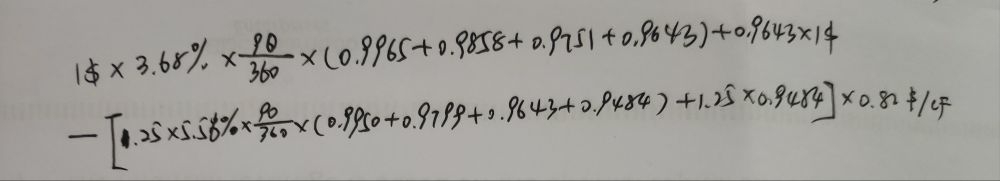 1$ × 3.68% × 90/360 × (0.9965+0.9858+0.9751+0.9643)+0.9643×1$
— [1.25×5.56%×90/360×(0.9950+0.9799+0.9643+0.9484)+1.25×0.9484]×0.82 $/CF